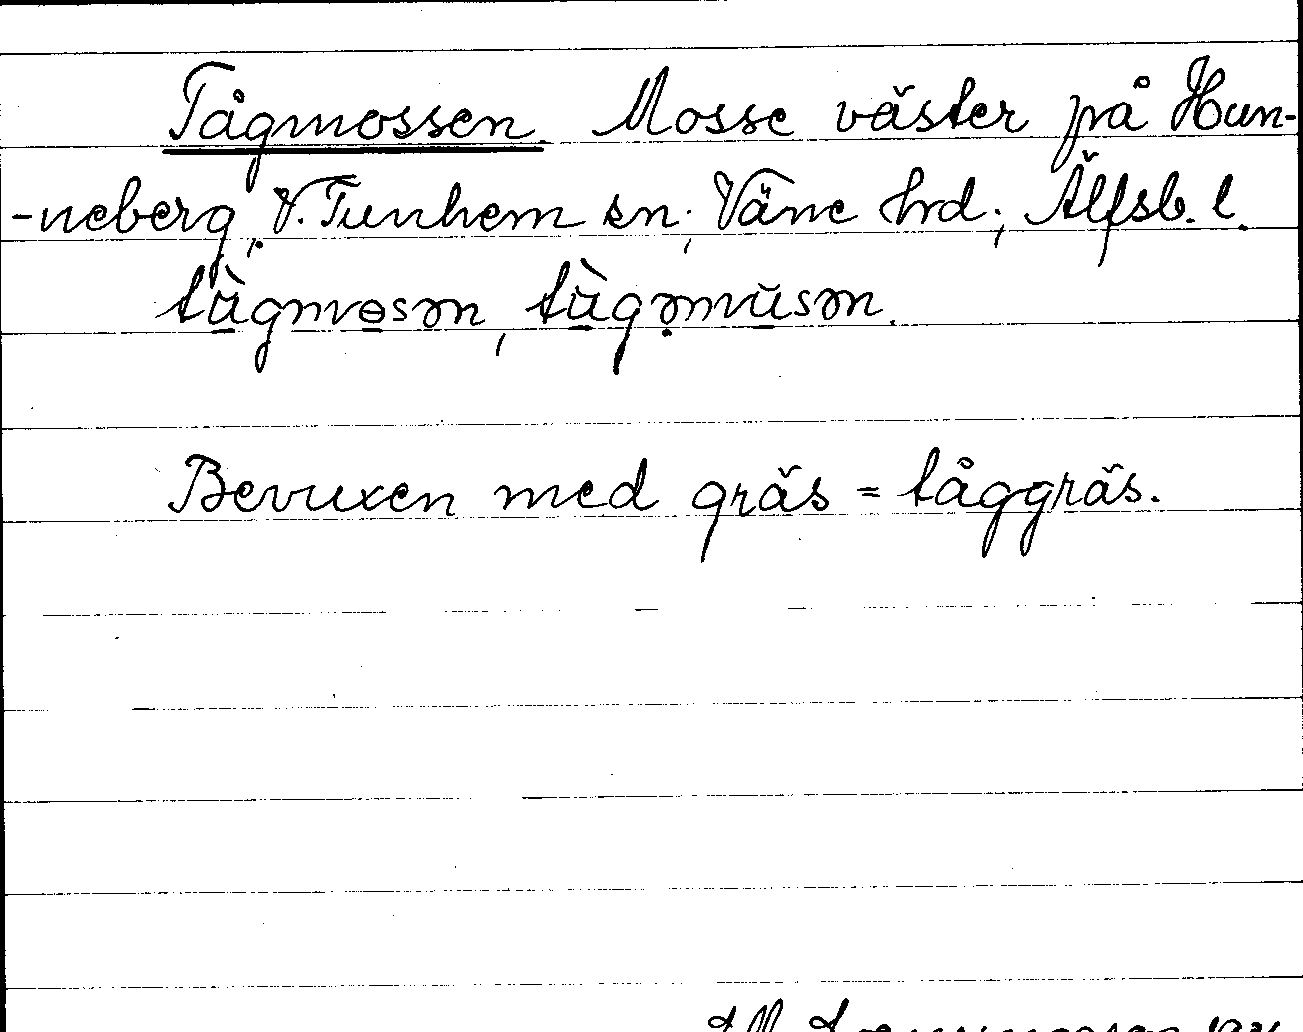 Tågmossen. Mosse väster på Hun-
-neberg, V. Tunhem sn; Väne hrd; Älfsb. l.
Bevuxen med gräs = tåggräs.